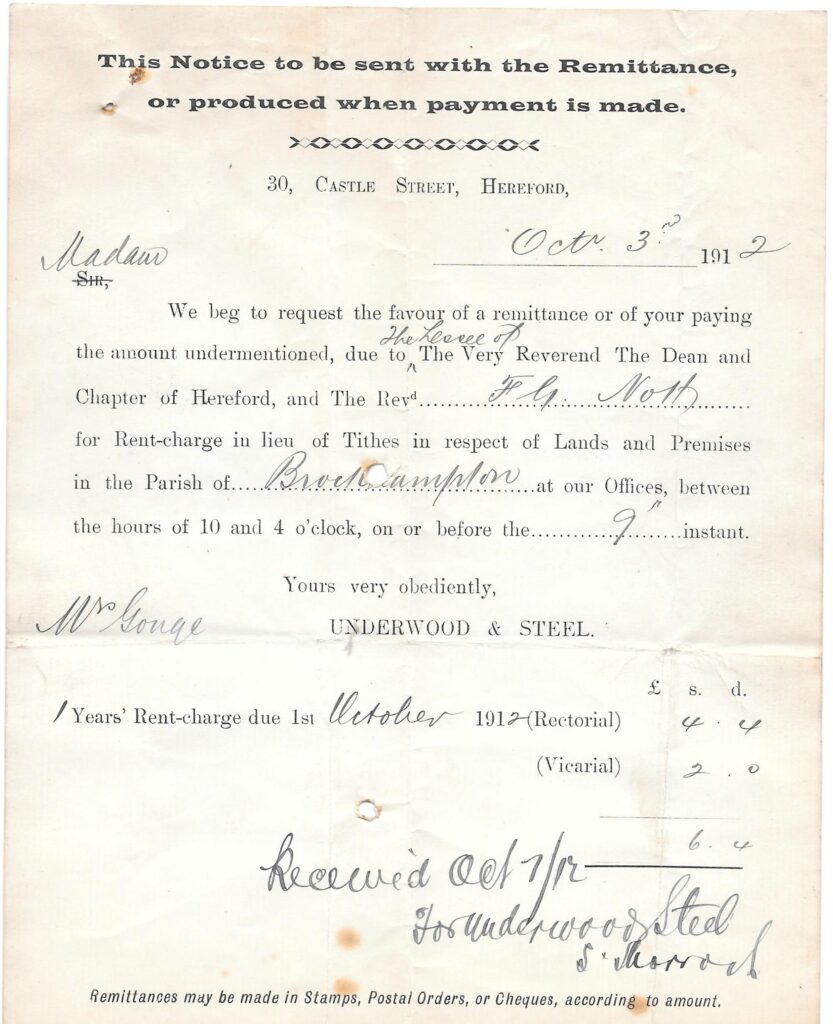 This Notice to be sent with the Remittance,
or produced when payment is made.
30, Castle Street, Hereford,
Octr. 3rd 1912
Madam
Sir,
We beg to request the favour of a remittance or of your paying
the Lessee of
the amount undermentioned, due to The Very Reverend The Dean and
Chapter of Hereford, and The Revd. F G. Nott
for Rent-charge in lieu of Tithes in respect of Lands and Premises
in the Parish of Brockhampton at our Offices, between
the hours of 10 and 4 o'clock, on or before the 9th instant.
Yours very obediently,
Mrs Gouge UNDERWOOD & STEEL.
£ s. d.
1 Years' Rent-charge due 1st October 1912 (Rectorial) 4 . 4
(Vicarial) 2 . 0
6 . 4
Received Oct 7/12
For Underwood & Steel
S.
Remittances may be made in Stamps, Postal Orders, or Cheques, according to amount.